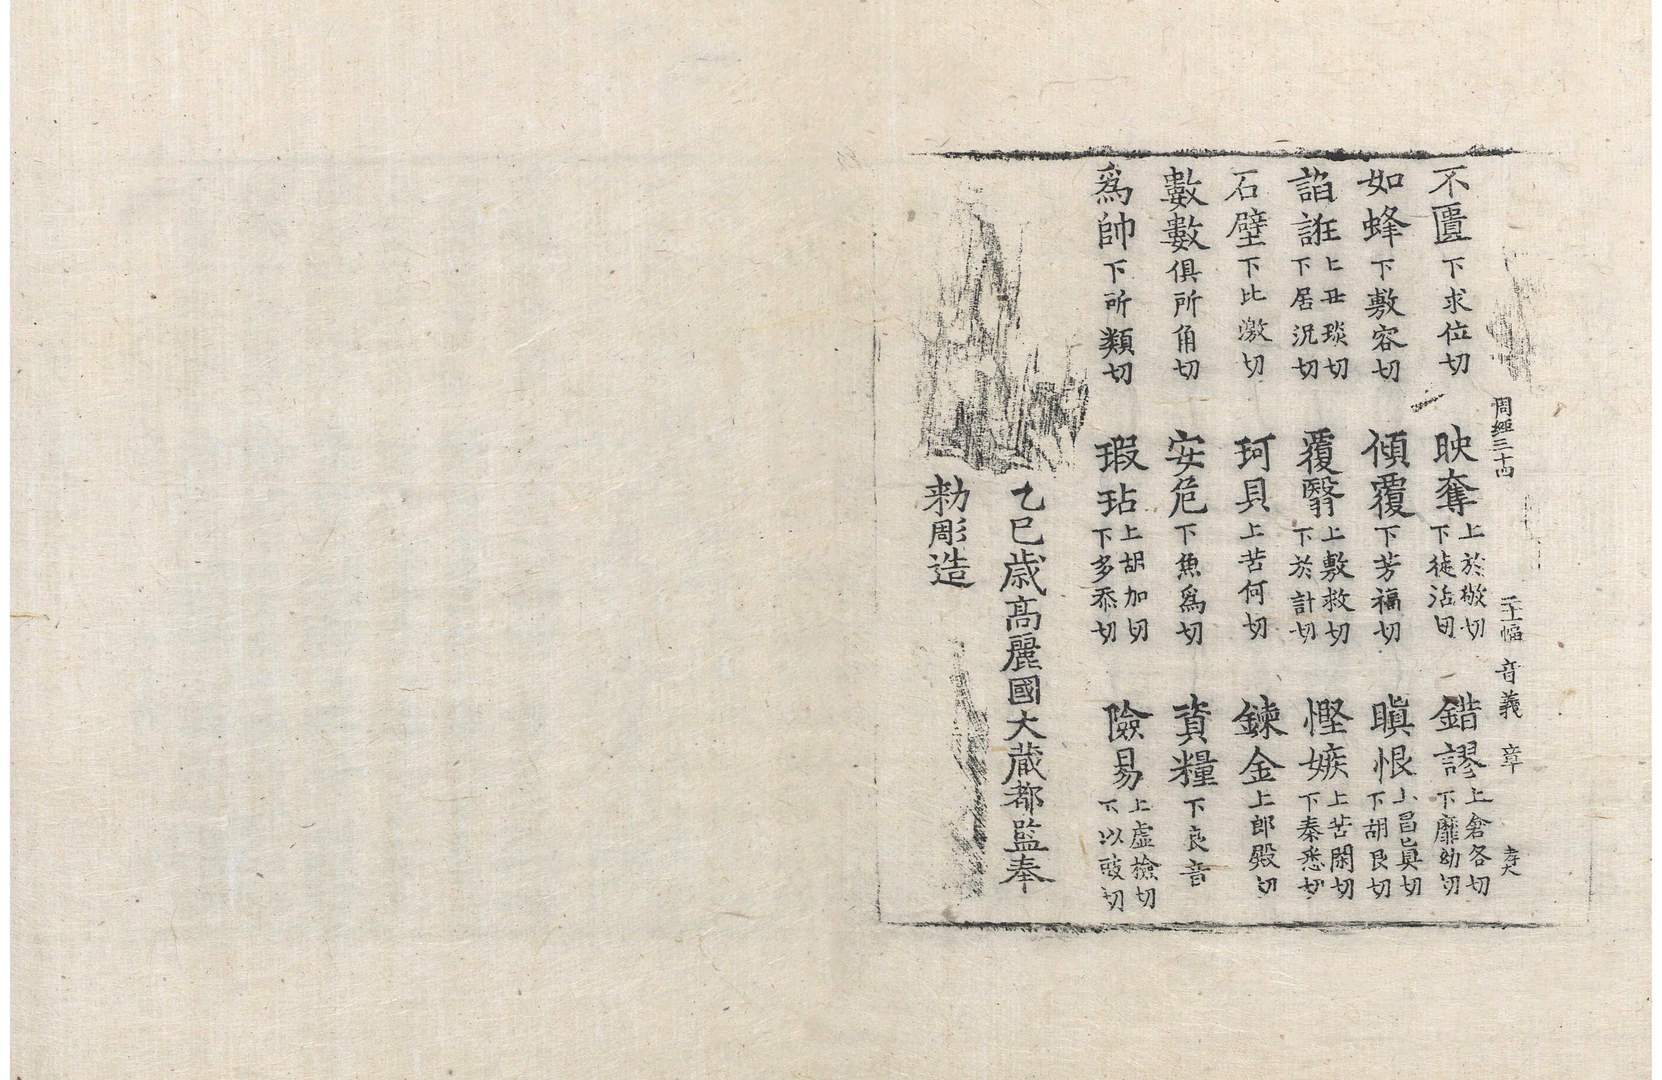 周経三十四 二十幅 音義 章 孝大
不匱下求位切 映奪上於敬切下徒活切 錯謬上倉各切下靡幼切
如蜂下敷容切 傾覆下芳福切 瞋恨上昌眞切下胡艮切
諂誑上丑琰切下居況切 覆翳上敷救切下於計切 慳嫉上苦閑切下秦悉切
石壁下比激切 珂貝上苦何切 鍊金上郎殿切
數數俱所角切 安危下魚爲切 資糧下良音
爲帥下所類切 瑕玷上胡加切下多忝切 險易上虛檢切下以豉切
乙巳歲高麗國大藏都監奉
勅彫造